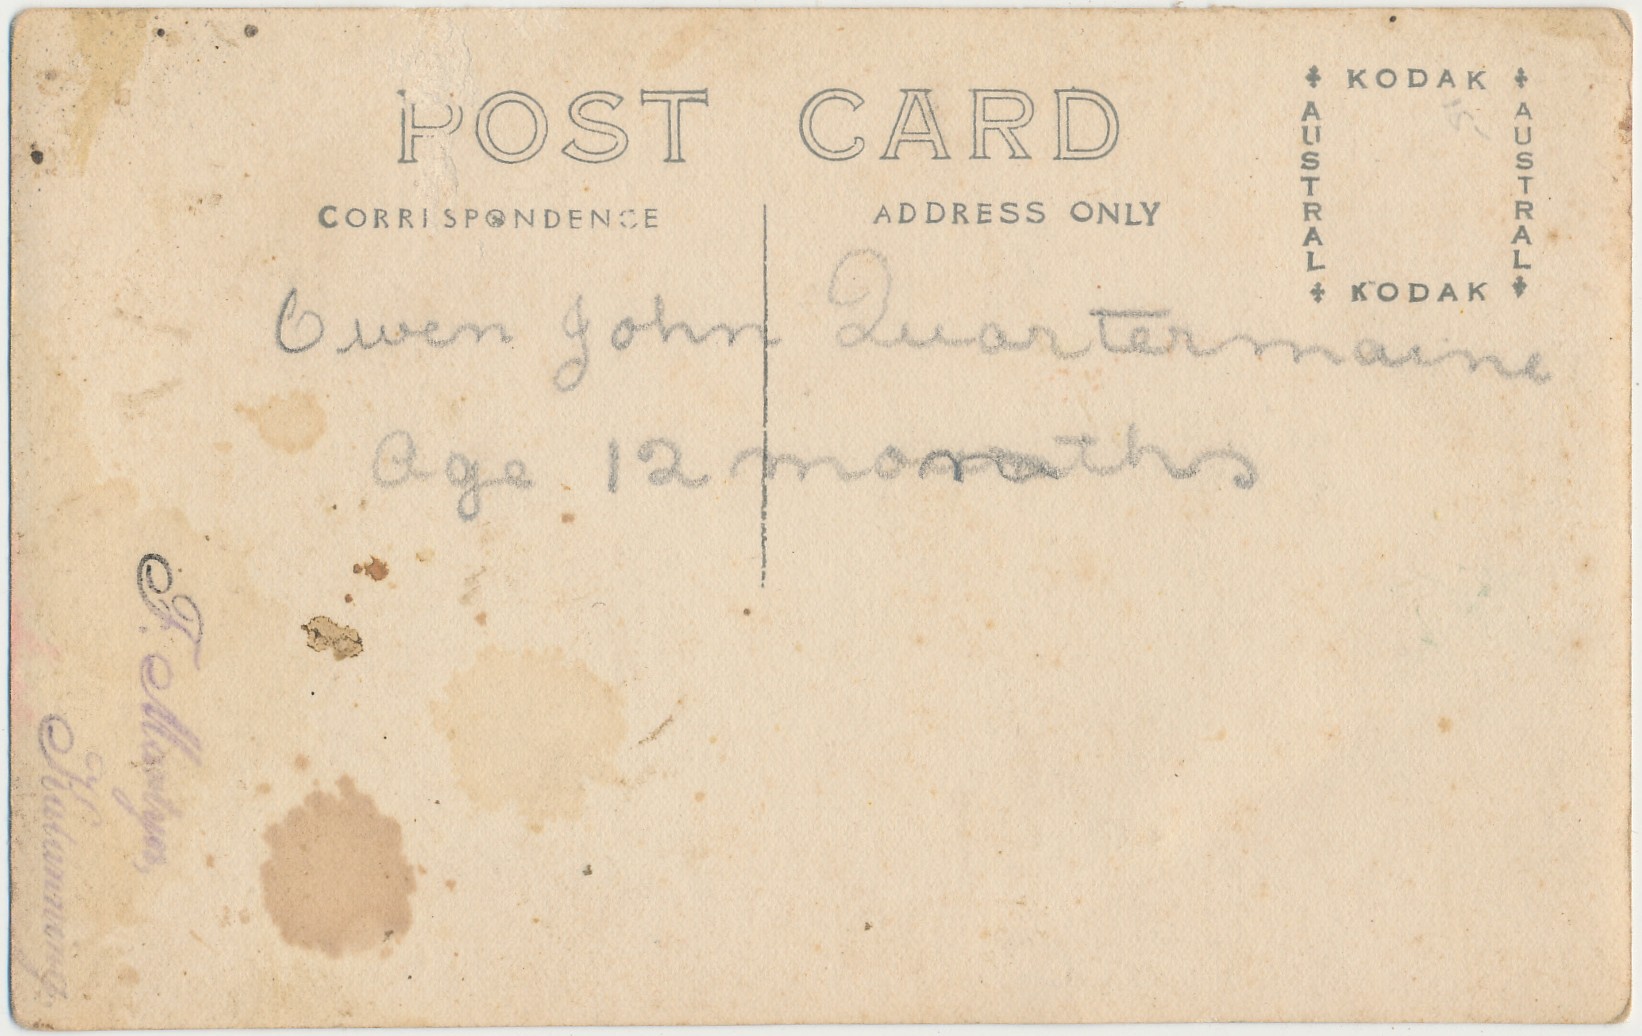 POST CARD
CORRESPONDENCE
ADDRESS ONLY
KODAK
AUSTRAL
AUSTRAL
KODAK
Owen John Quartermaine
Age 12 months
F. Martyn,
Katanning.